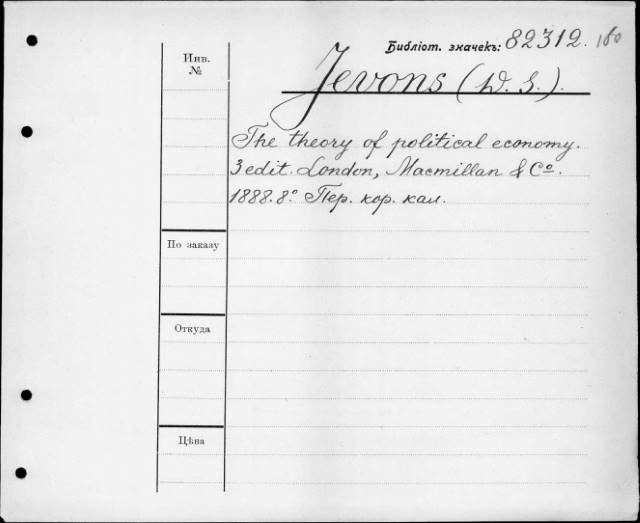 Библіот. значекъ: 82312. 160
Инв. №
Jevons (W. S.).
The theory of political economy.
3 edit. London, Macmillan & Cº.
1888. 8.º Пер. кор. кал.
По заказу
Откуда
Цѣна